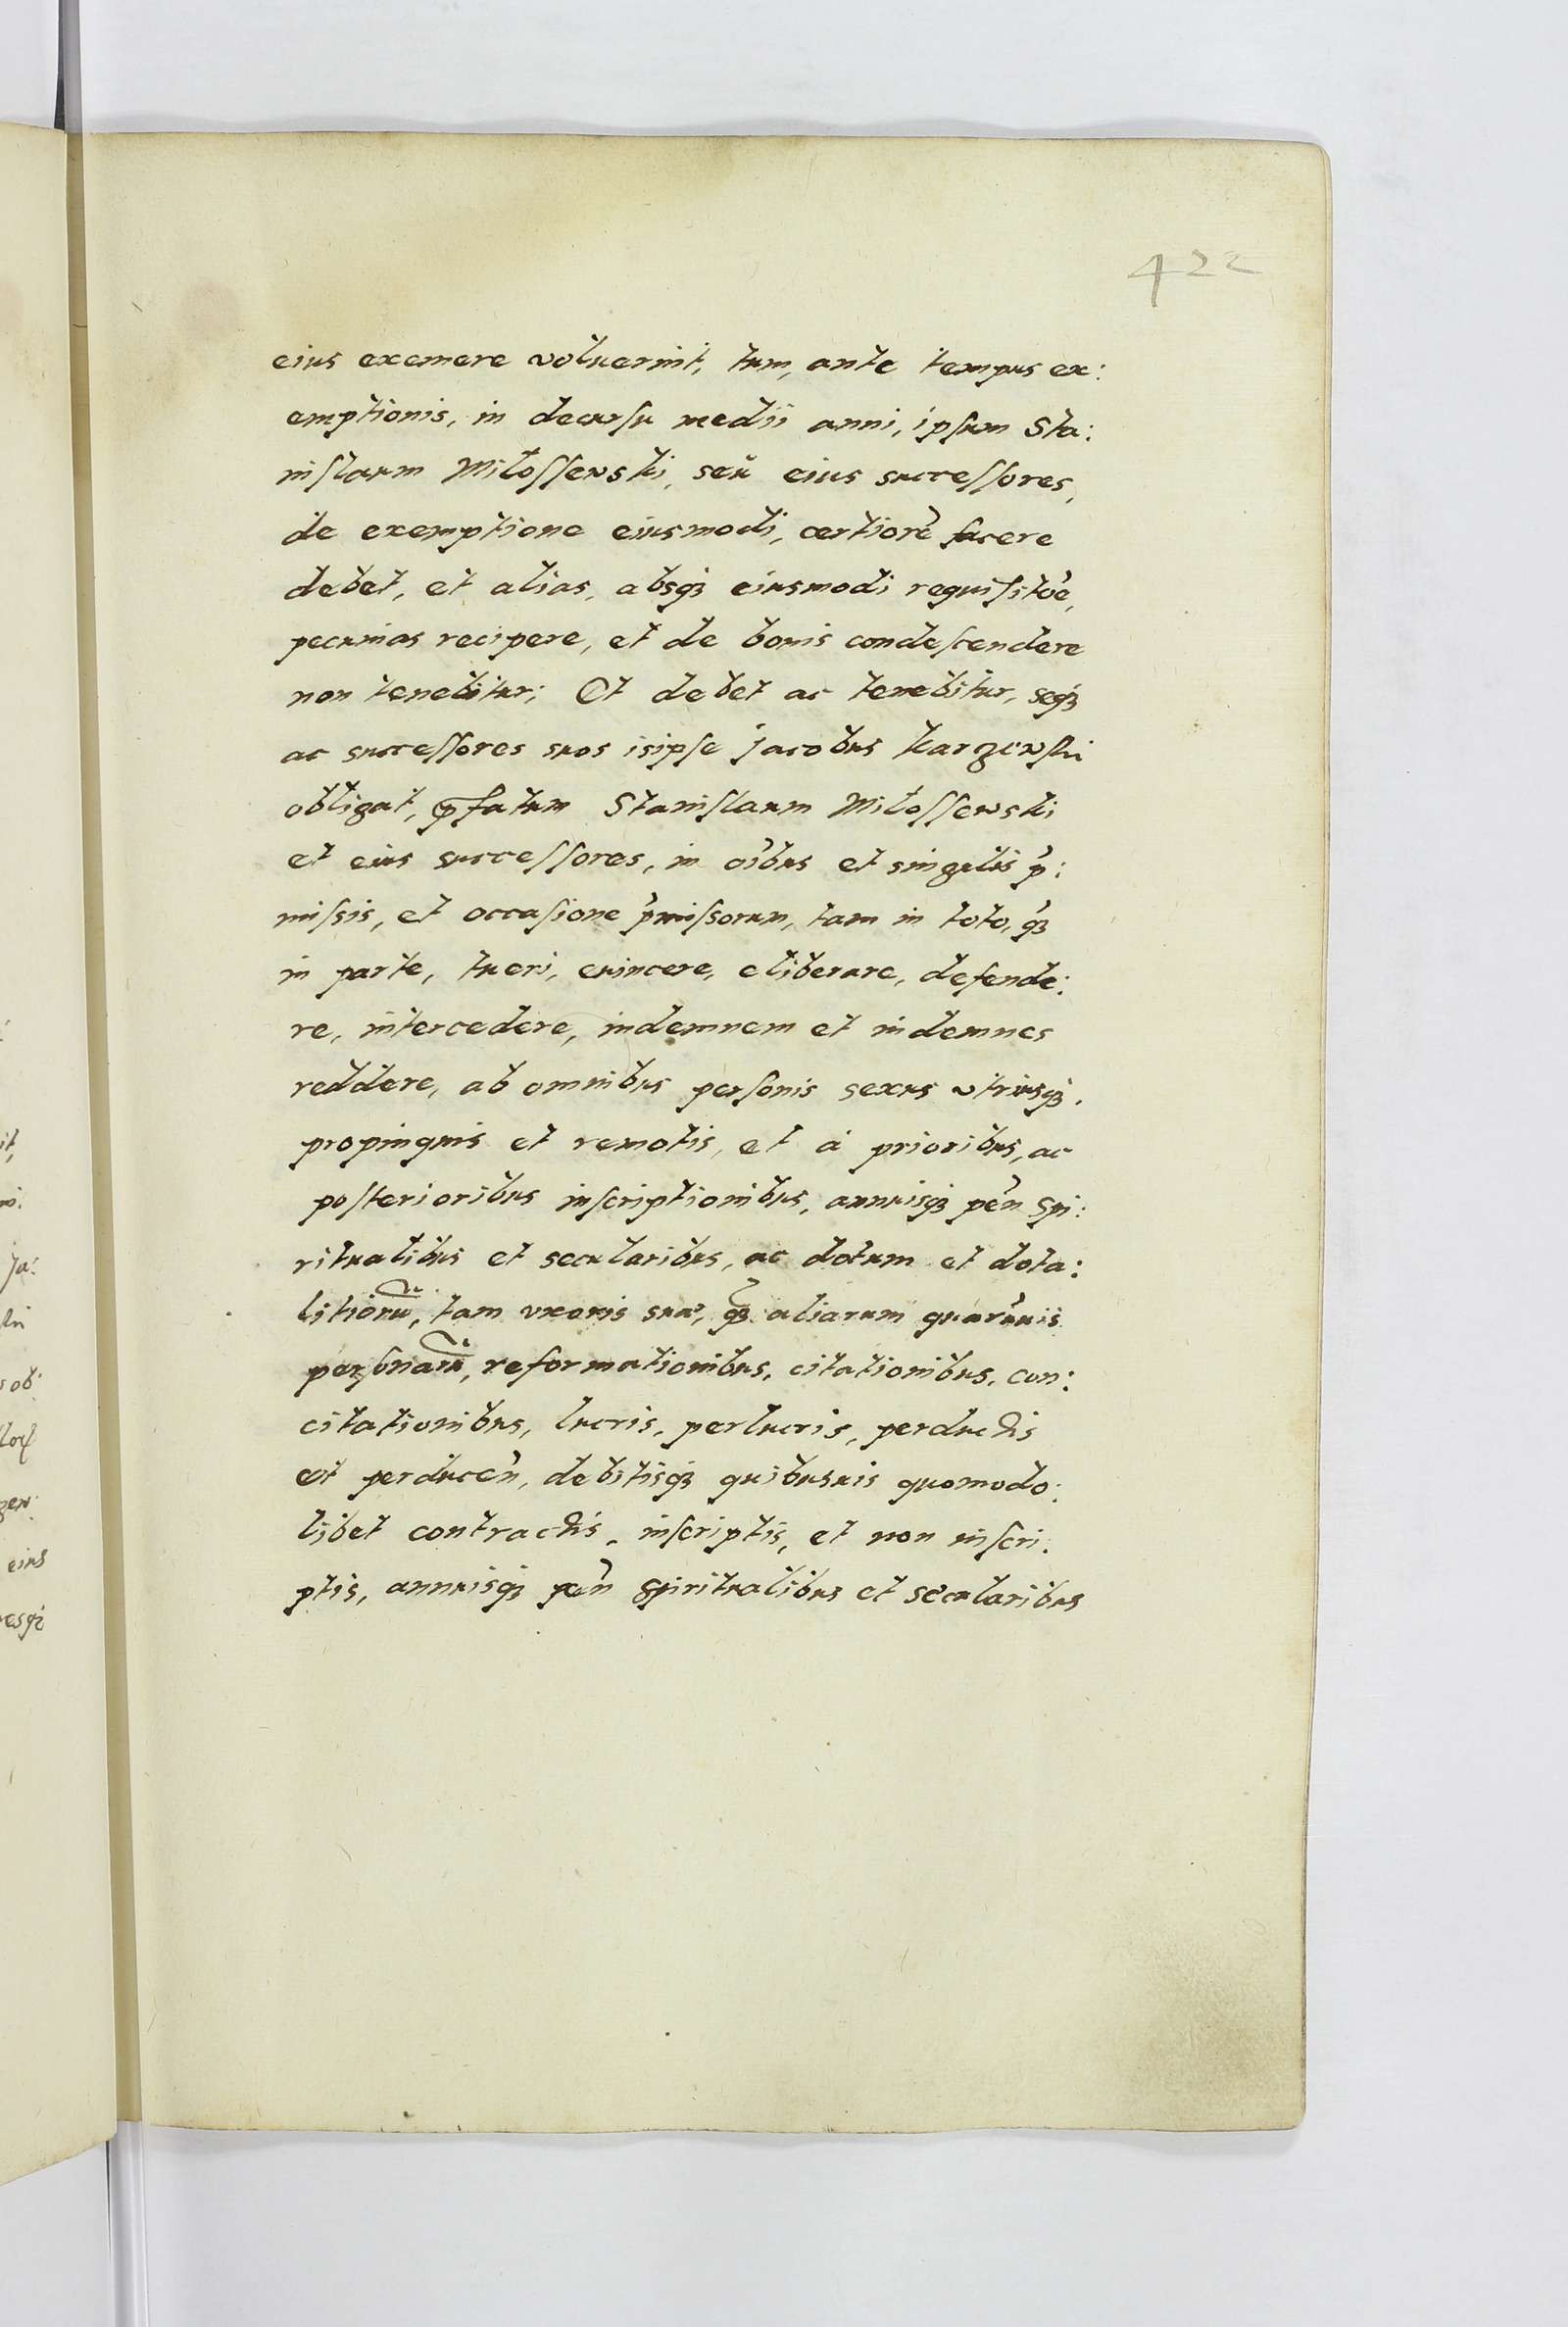 422
eius exemere voluerint, tum, ante tempus ex:
emptionis, in decursu medii anni, ipsum Sta:
nislaum Miłossewski, seu eius successores,
de exemptione eiusmodi, certiorẽ facere
debet, et alias, absqȝ eiusmodi requisitõe,
pecunias recipere, et de bonis condescendere
non tenebitur; Et debet ac tenebitur, seqȝ
ac successores suos isipse Jacobus Kargewski
obligat, p̃fatum Stanislaum Miłossewski
et eius successores, in oĩbus et singulis p̃:
missis, et occasione p̃missorum, tam in toto, q̃ȝ
in parte, tueri, euincere, eliberare, defende:
re, intercedere, indemnem et indemnes
reddere, ab omnibus personis sexus vtriusqȝ.
propinquis et remotis, et à prioribus, ac
posterioribus inscriptionibus, annuisqȝ pẽn Spi:
ritualibus et secularibus, ac dotum et dota:
litiorũ, tam vxoris suæ, q̃ȝ aliarum quarũuis
personarũ, reformationibus, citationibus, con:
citationibus, lucris, perlucris, perductis
et perducẽn, debitisqȝ quibusuis quomodo:
libet contractis, inscriptis, et non inscri:
ptis, annuisqȝ pẽn Spiritualibus et secularibus